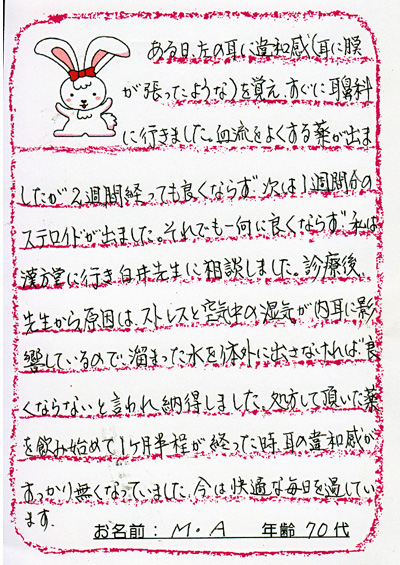 ある日、左の耳に違和感(耳に膜
が張ったような)を覚え、すぐに耳鼻科
に行きました。血流をよくする薬が出ま
したが2週間経っても良くならず、次は1週間分の
ステロイドが出ました。それでも一向に良くならず、私は
漢方堂に行き白井先生に相談しました。診療後、
先生から原因は、ストレスと空気中の湿気が内耳に影
響しているので、溜まった水を体外に出さなければ良
くならないと言われ、納得しました。処方して頂いた薬
を飲み始めて1ヶ月半程が経った時、耳の違和感が
すっかり無くなっていました。今は快適な毎日を過してい
ます。
お名前: M・A 年齢 70代